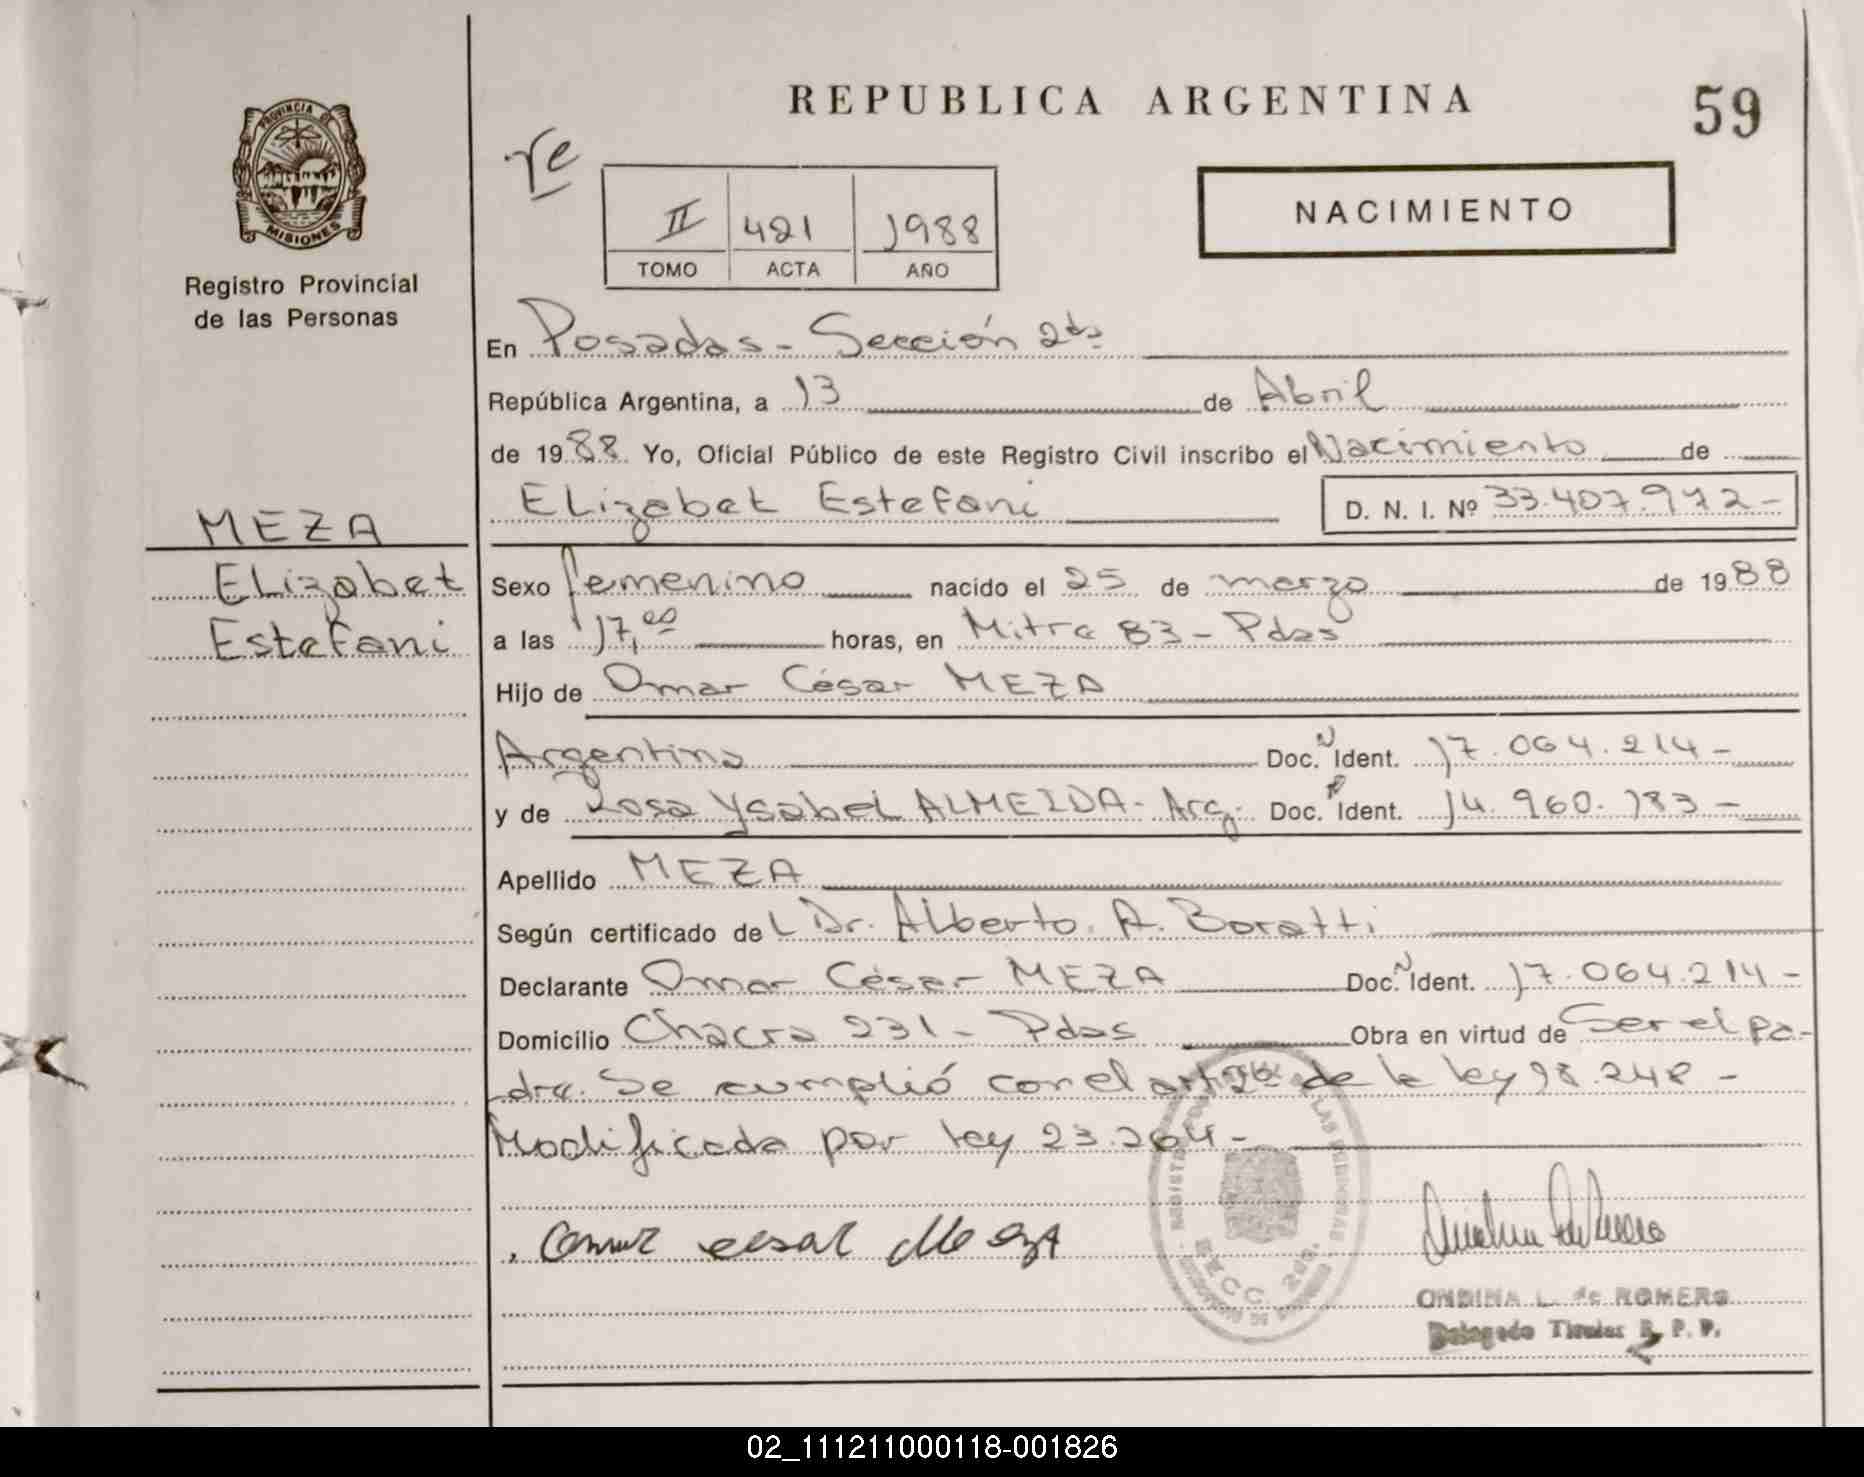 REPUBLICA ARGENTINA
59
PROVINCIA DE
MISIONES
Registro Provincial
de las Personas
II 421 1988
TOMO ACTA AÑO
NACIMIENTO
En Posadas - Sección 2da
República Argentina, a 13 de Abril
de 1988 Yo, Oficial Público de este Registro Civil inscribo el Nacimiento de
Elizabet Estefani D. N. I. Nº 33.407.972-
MEZA
Elizabet
Estefani
Sexo femenino nacido el 25 de marzo de 1988
a las 17,00 horas, en Mitre 83 - Pdas
Hijo de Omar César MEZA
Argentino Doc. N Ident. 17.064.214-
y de Rosa Ysabel ALMEIDA - Arg. Doc. Ident. 14.960.183-
Apellido MEZA
Según certificado del Dr. Alberto A. Boratti
Declarante Omar César MEZA Doc. N Ident. 17.064.214-
Domicilio Chacra 231 - Pdas Obra en virtud de Ser el pa-
dre. Se cumplió con el art 2º de la ley 18.248 -
Modificada por ley 23.264 -
Omar cesar Meza
ONDINA L. de ROMERO
Delegado Titular R. P. P.
02_111211000118-001826